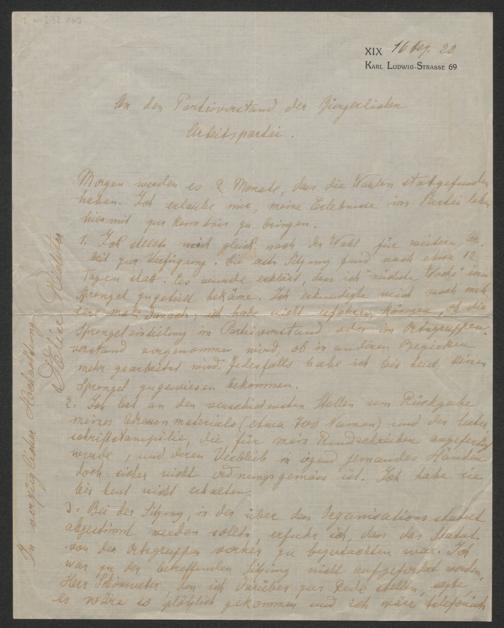 XIX 16 Dez. 20
KARL LUDWIG-STRASSE 69
An den Parteivorstand der Bürgerlichen
Arbeitspartei.
Morgen werden es 2 Monate, dass die Wahlen stattgefunden
haben. Ich erlaube mir, meine Erlebnisse im Parteileben
hiermit zur Kenntnis zu bringen.
1. Ich stellte mich gleich nach der Wahl für weitere Ar-
beit zur Verfügung. Die erste Sitzung fand nach etwa 12
Tagen statt. Es wurde erklärt, dass ich "nächste Woche" einen
Sprengel zugeteilt bekäme. Ich erkundigte mich noch meh-
rere male danach; ich habe nicht erfahren können, ob die
Sprengeleinteilung im Parteivorstand oder im Ortsgruppen-
vorstand vorgenommen wird, ob in anderen Bezirken
mehr gearbeitet wird. Jedenfalls habe ich bis heut keinen
Sprengel zugewiesen bekommen.
2. Ich bat an den verschiedensten Stellen um Rückgabe
meines Adressenmaterials (etwa 700 Namen) und der
die für mein Rundschreiben angefertigt
wurde, und deren Verbleib in irgend jemandes Händen
doch sicher nicht ordnungsgemäss ist. Ich habe sie
bis heut nicht erhalten.
3. Bei der Sitzung, in der über das Organisationsstatut
abgestimmt werden sollte, erfuhr ich, dass das Statut
von den Ortsgruppen vorher zu begutachten war. Ich
war zu der betreffenden Sitzung nicht aufgefordert worden.
Herr den ich darüber zur Rede stellte, sagte
es wäre so plötzlich gekommen und ich wäre telefonisch
In vorzüglicher Hochachtung
Helene Richter